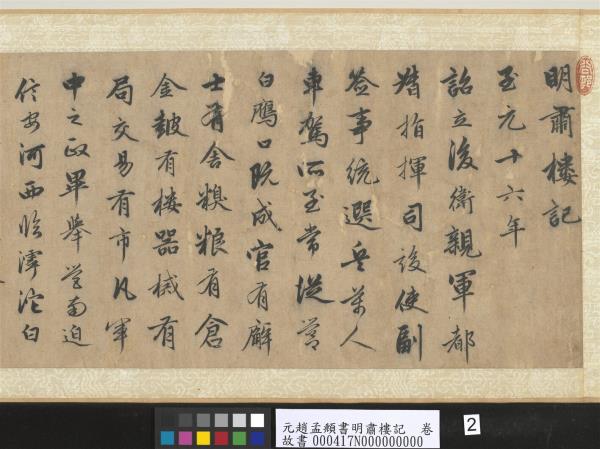 明肅樓記
至元十六年
詔立後衛親軍都
指揮司設使副
签事統選兵萬人
車駕所至常從營
白鴈口既成官有廨
士有舍糗粮有倉
金皷有樓器械有
局交易有市凡軍
中之政畢舉營南迫
信安河西臨滹沱白
元趙孟頫書明肅樓記 卷
故書 000417N000000000
2